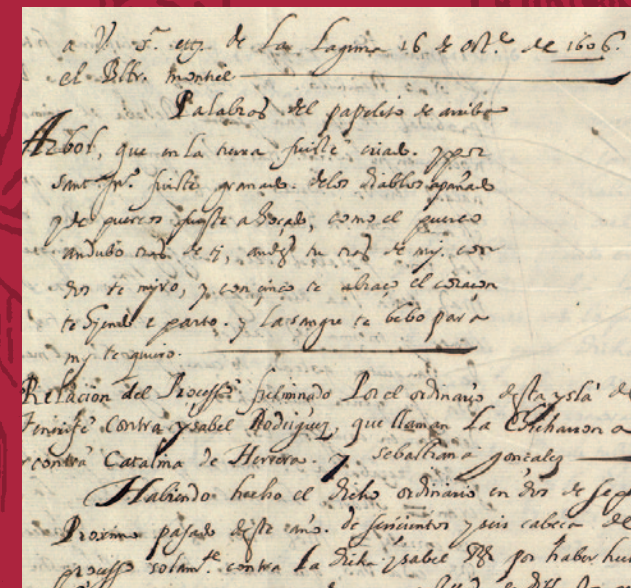 a V. S.ª etz de La Laguna 16 de oct.e de 1606.
el Bllr. montiel
Palabras del papelito de arriba
Arbol, que en la tierra fuiste criado. y por
Sant Ju.º fuiste granado. de los diablos apañado
y de puercos fuiste ahoçado, como el puerco
andubo tras de ti, andes tu tras de my. con
dos te myro, y con cinco te abraço el coraçon
te y parto. y La sangre te bebo para
my te quiero.
Relaçion del Processo fulminado Por el ordinario desta ysla de
Tenerife Contra ysabel Rodriguez, que llaman La Chicharrona
contra Catalina de Herrera. y sebastiana gonzalez
Habiendo hecho el dicho ordinario en dos de sep
Proximo pasado deste año. de seiscientos y seis cabeça de
processo solam.te contra La dicha ysabel R por haber